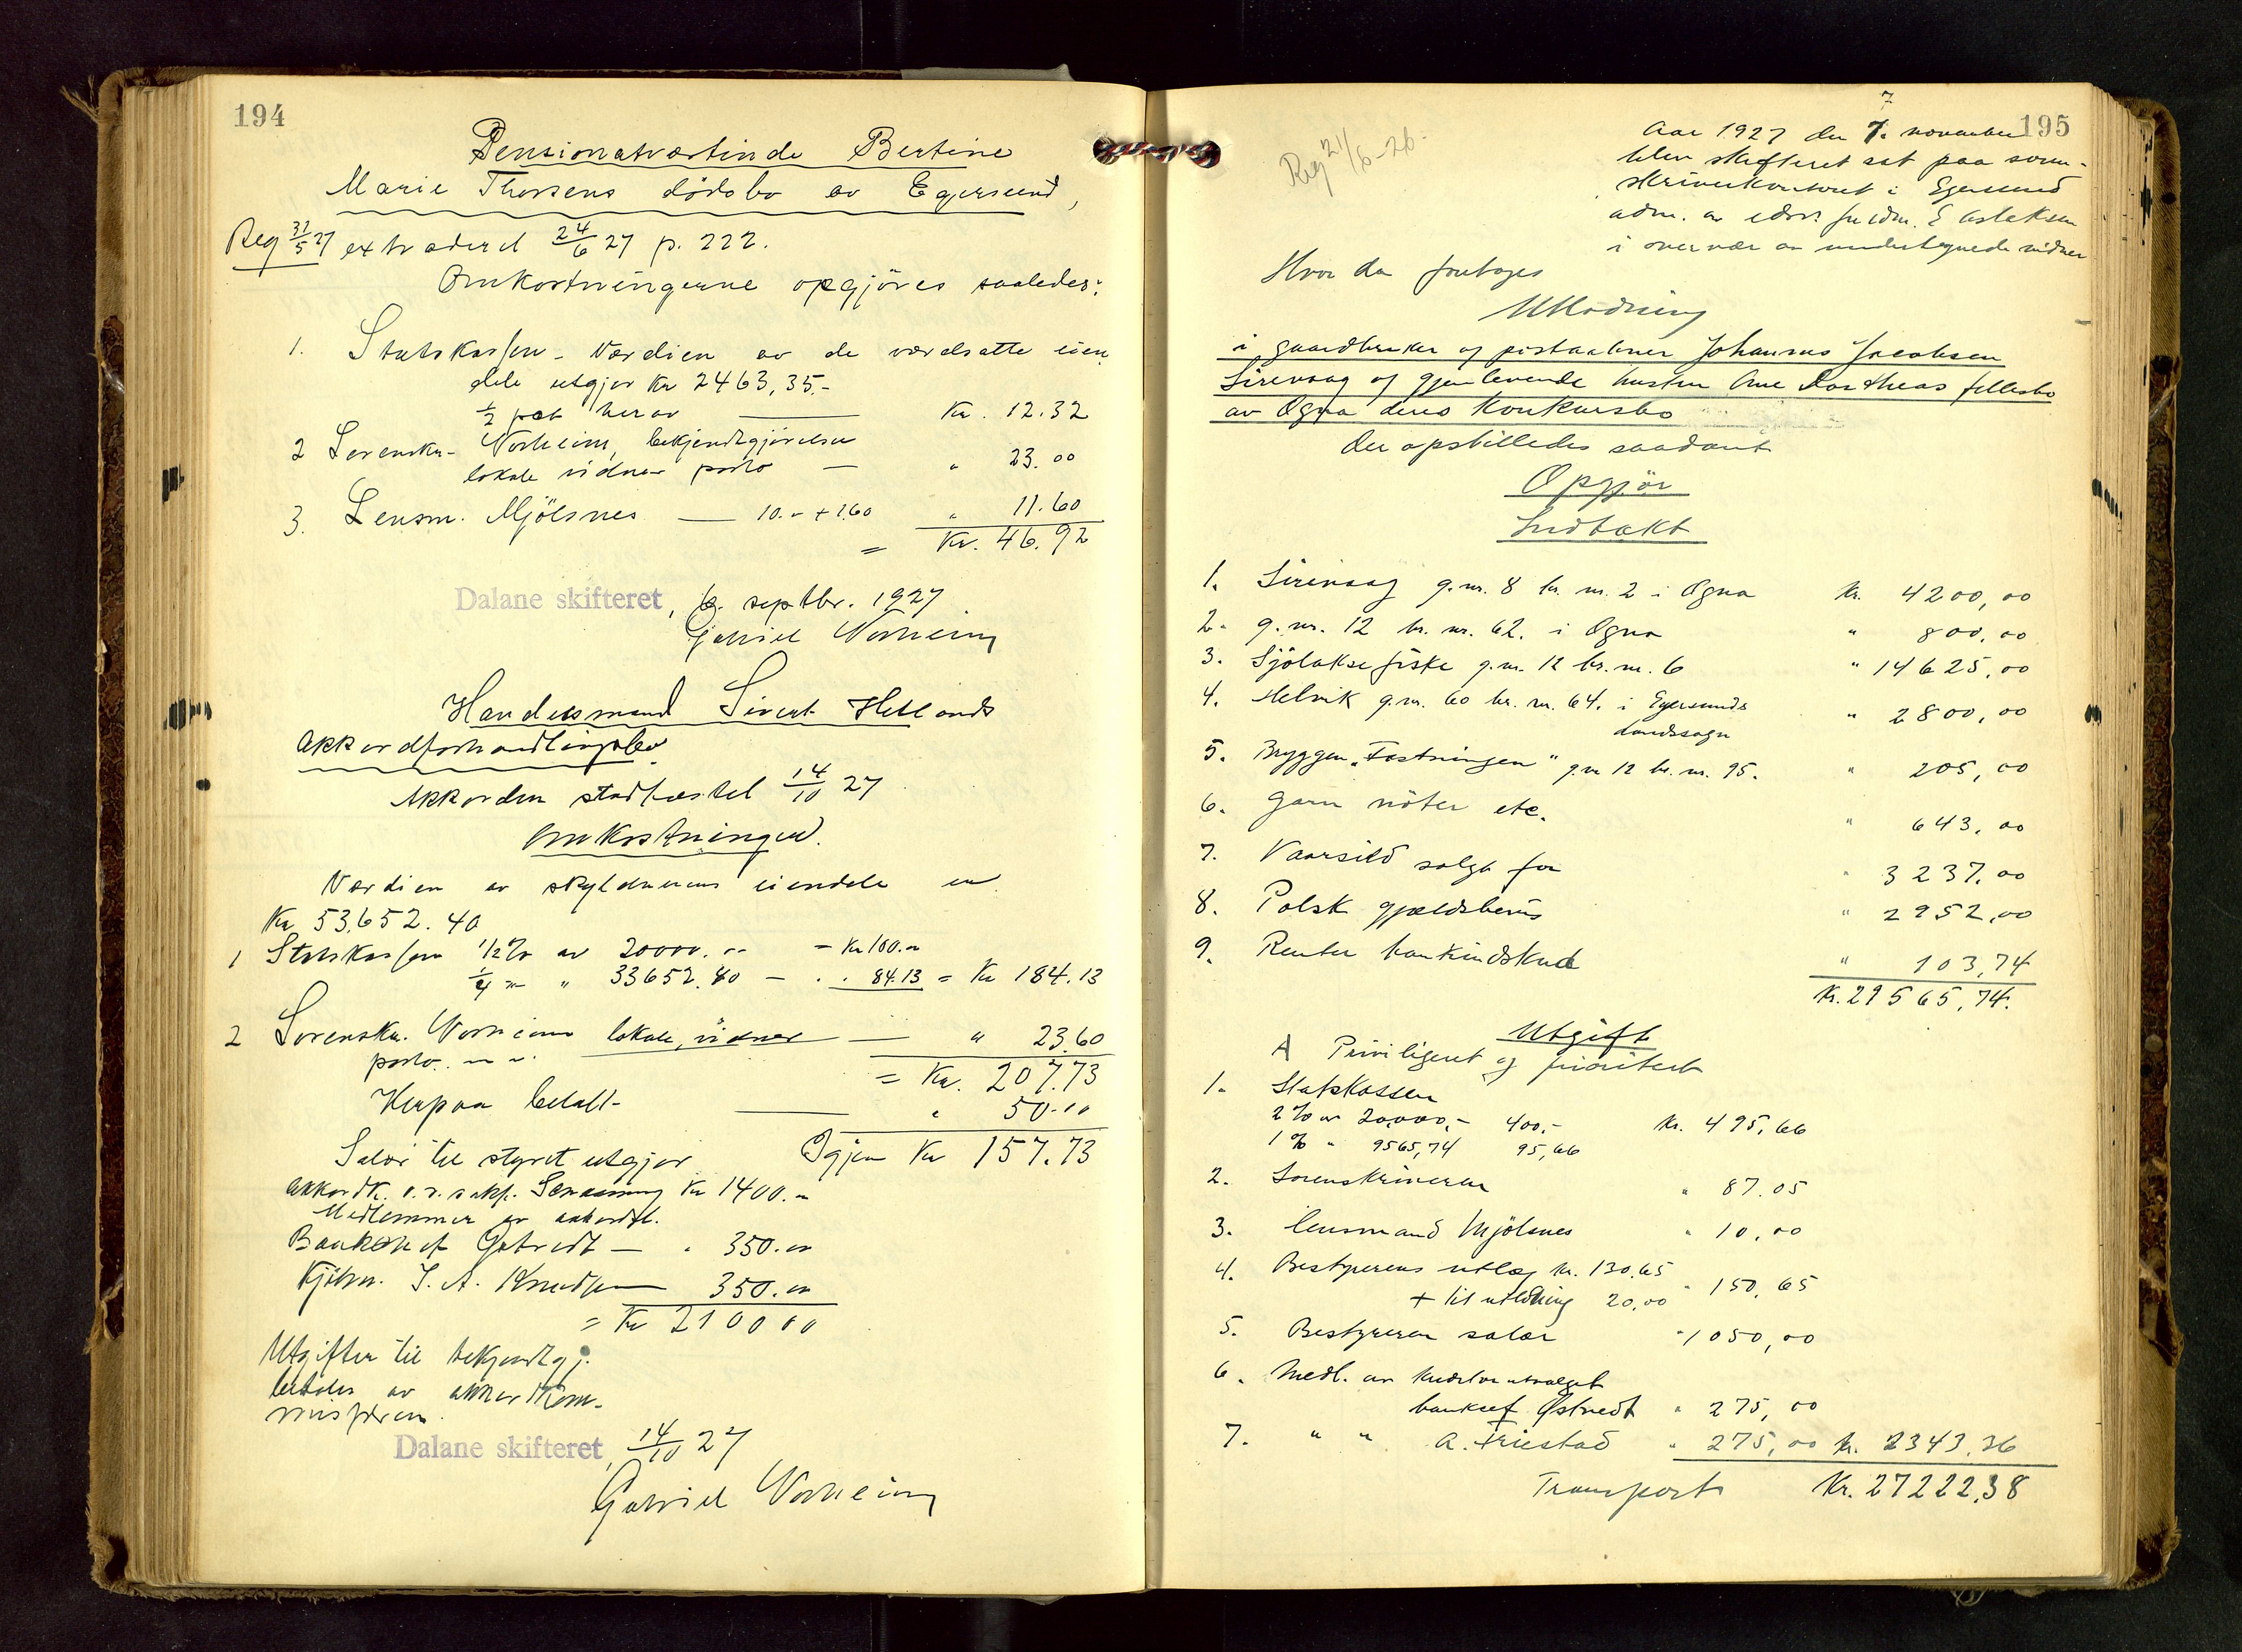 194
Pensionatværtinde Bertine
Marie Thorsens dödsbo av Egersund,
Reg 31/5 27 extraderet 24/6 27 p. 222.
Omkostningerne opgjöres saaledes:
1. Statskassen - Værdien av de værdsatte eien
dele utgjør Kr 2463,35.-
1/2 pct herav — Kr. 12.32
2 Sorenskr. Norheim, bekjendtgjörelser
lokale vidner porto — " 23.00
3. Lensm. Mjölsnes — 10.- + 1.60 " 11.60
= Kr. 46.92
Dalane skifteret, 6. septbr. 1927
Gabriel Norheim
Handelsmand Sivert Hetlands
Akkordforhandlingsbo
Akkorden stadfæstet 14/10 27
Omkostninger.
Værdien av skyldnerens eiendele er
Kr 53.652.40
1 Statskassen 1/2 % av 20000.- = Kr 100.-
1/4 - " 33652.40 - . . 84.13 = Kr 184.13
2 Sorenskr. Norheim lokale, vidner — " 23.60
porto
= Kr. 207.73
Herpaa betalt — " 50.00
Igjen Kr 157.73
Salær til styret utgjør
Kr 1400.-
Medlemmer av
Banksjef — . 350.00
Kjöbm. S. A. Knudsen — 350.00
= Kr 2100 00
Utgifter til bekjendtgj.
betales av akkordkom-
missæren.
Dalane skifteret, 14/10 27
Gabriel Norheim
195
Reg 21/6-26.
7
Aar 1927 den 7. november
blev skifteret sat paa soren-
skriverkontoret i Egersund
adm. av
i overvær av undertegnede vidner
Hvor da foretages
Utlodning
i gaardbruker og postaabner Johannes Jacobsen
Sirevaag og gjenlevende hustru Ane Dortheas fellesbo
av Ogna deres Konkursbo
Der opstilledes saadant
Opgjör
Indtækt
1. Sirevaag g.nr. 8 br. nr. 2 i Ogna Kr. 4200,00
2. g. nr. 12 br. nr. 62. i Ogna " 800,00
3. Sjölaksefiske g.nr. 12 br.nr. 6 " 14625,00
4. Helvik g.nr. 60 br. nr. 64. i Egersunds
landssogn " 2800,00
5. Bryggen „Fæstningen" g.nr 12 br. nr. 95. " 205,00
6. Garn nöter etc. " 643,00
7. Vaarsild solgt for " 3237,00
8. Polsk gjældsbevis " 2952,00
9. Renter bankindskud " 103,74
Kr. 29565,74.
Utgift
A Priviligeret og prioritert
1. Statskassen
2 % av 20,000,- 400,- Kr. 495,66
1 % " 9565,74 95,66
2. Sorenskriveren " 87.05
3. Lensmand Mjölsnes " 10,00
4. Bestyrerens utlæg kr. 130,65
+ til utlodning 20,00 " 150,65
5. Bestyreren salær " 1050,00
6. Medl. av kreditorutvalget
banksjef Østvedt " 275,00
7. " " A. Friestad " 275,00 kr. 2343,36
Transport Kr. 27222,38